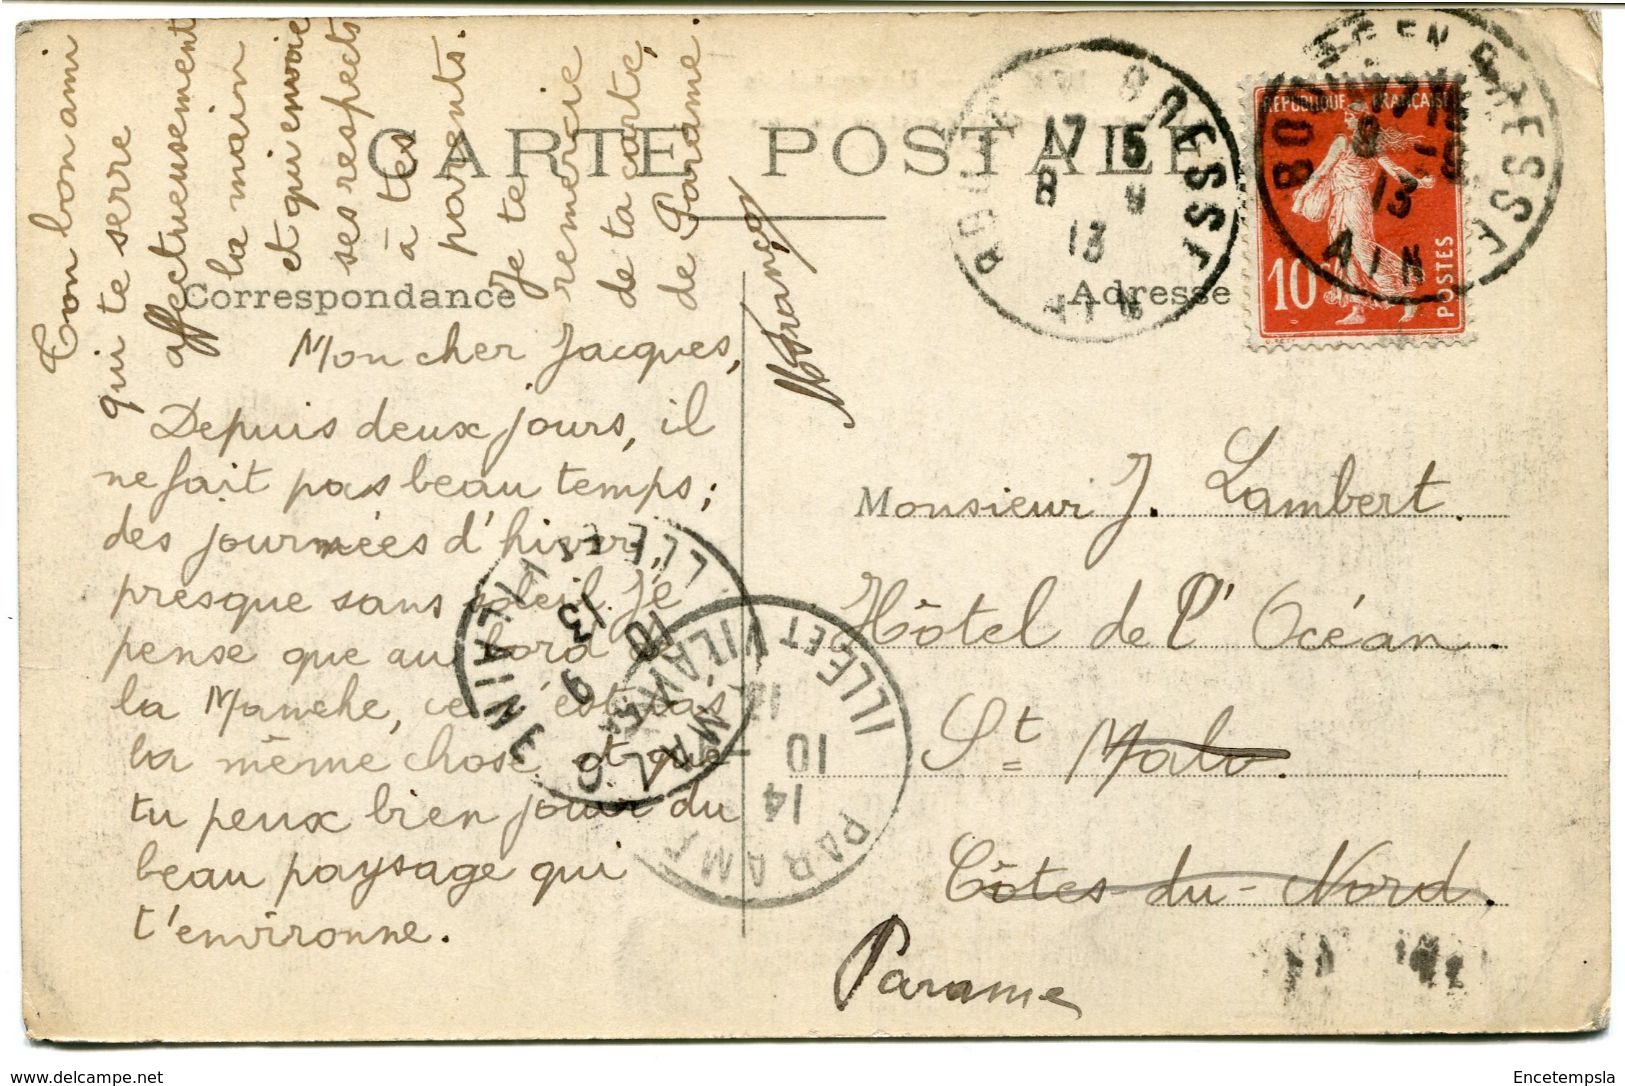 CARTE POSTALE
Correspondance
Adresse
Mon cher Jacques,
Depuis deux jours, il
ne fait pas beau temps ;
des journées d'hiver,
presque sans soleil. Je
pense que au bord de
la Manche, ce n'est pas
la même chose et que
tu peux bien jouir du
beau paysage qui
t'environne.
Ton bon ami
qui te serre
affectueusement
la main
et qui envoie
ses respects
à tes
parents.
Je te
remercie
de ta carte,
de Paramé.
François
Monsieur J. Lambert.
Hôtel de l'Océan.
St Malo.
Côtes-du-Nord.
Parame
REPUBLIQUE FRANÇAISE
10
POSTES
BRESSE
17 5
8 9
13
AIN
BOURG EN BRESSE
17 15
8 -9
13
AIN
ILLE ET VILAINE
10
9
13
PARAMÉ
ILLE ET VILAINE
14
10
delcampe.net
Encetempsla